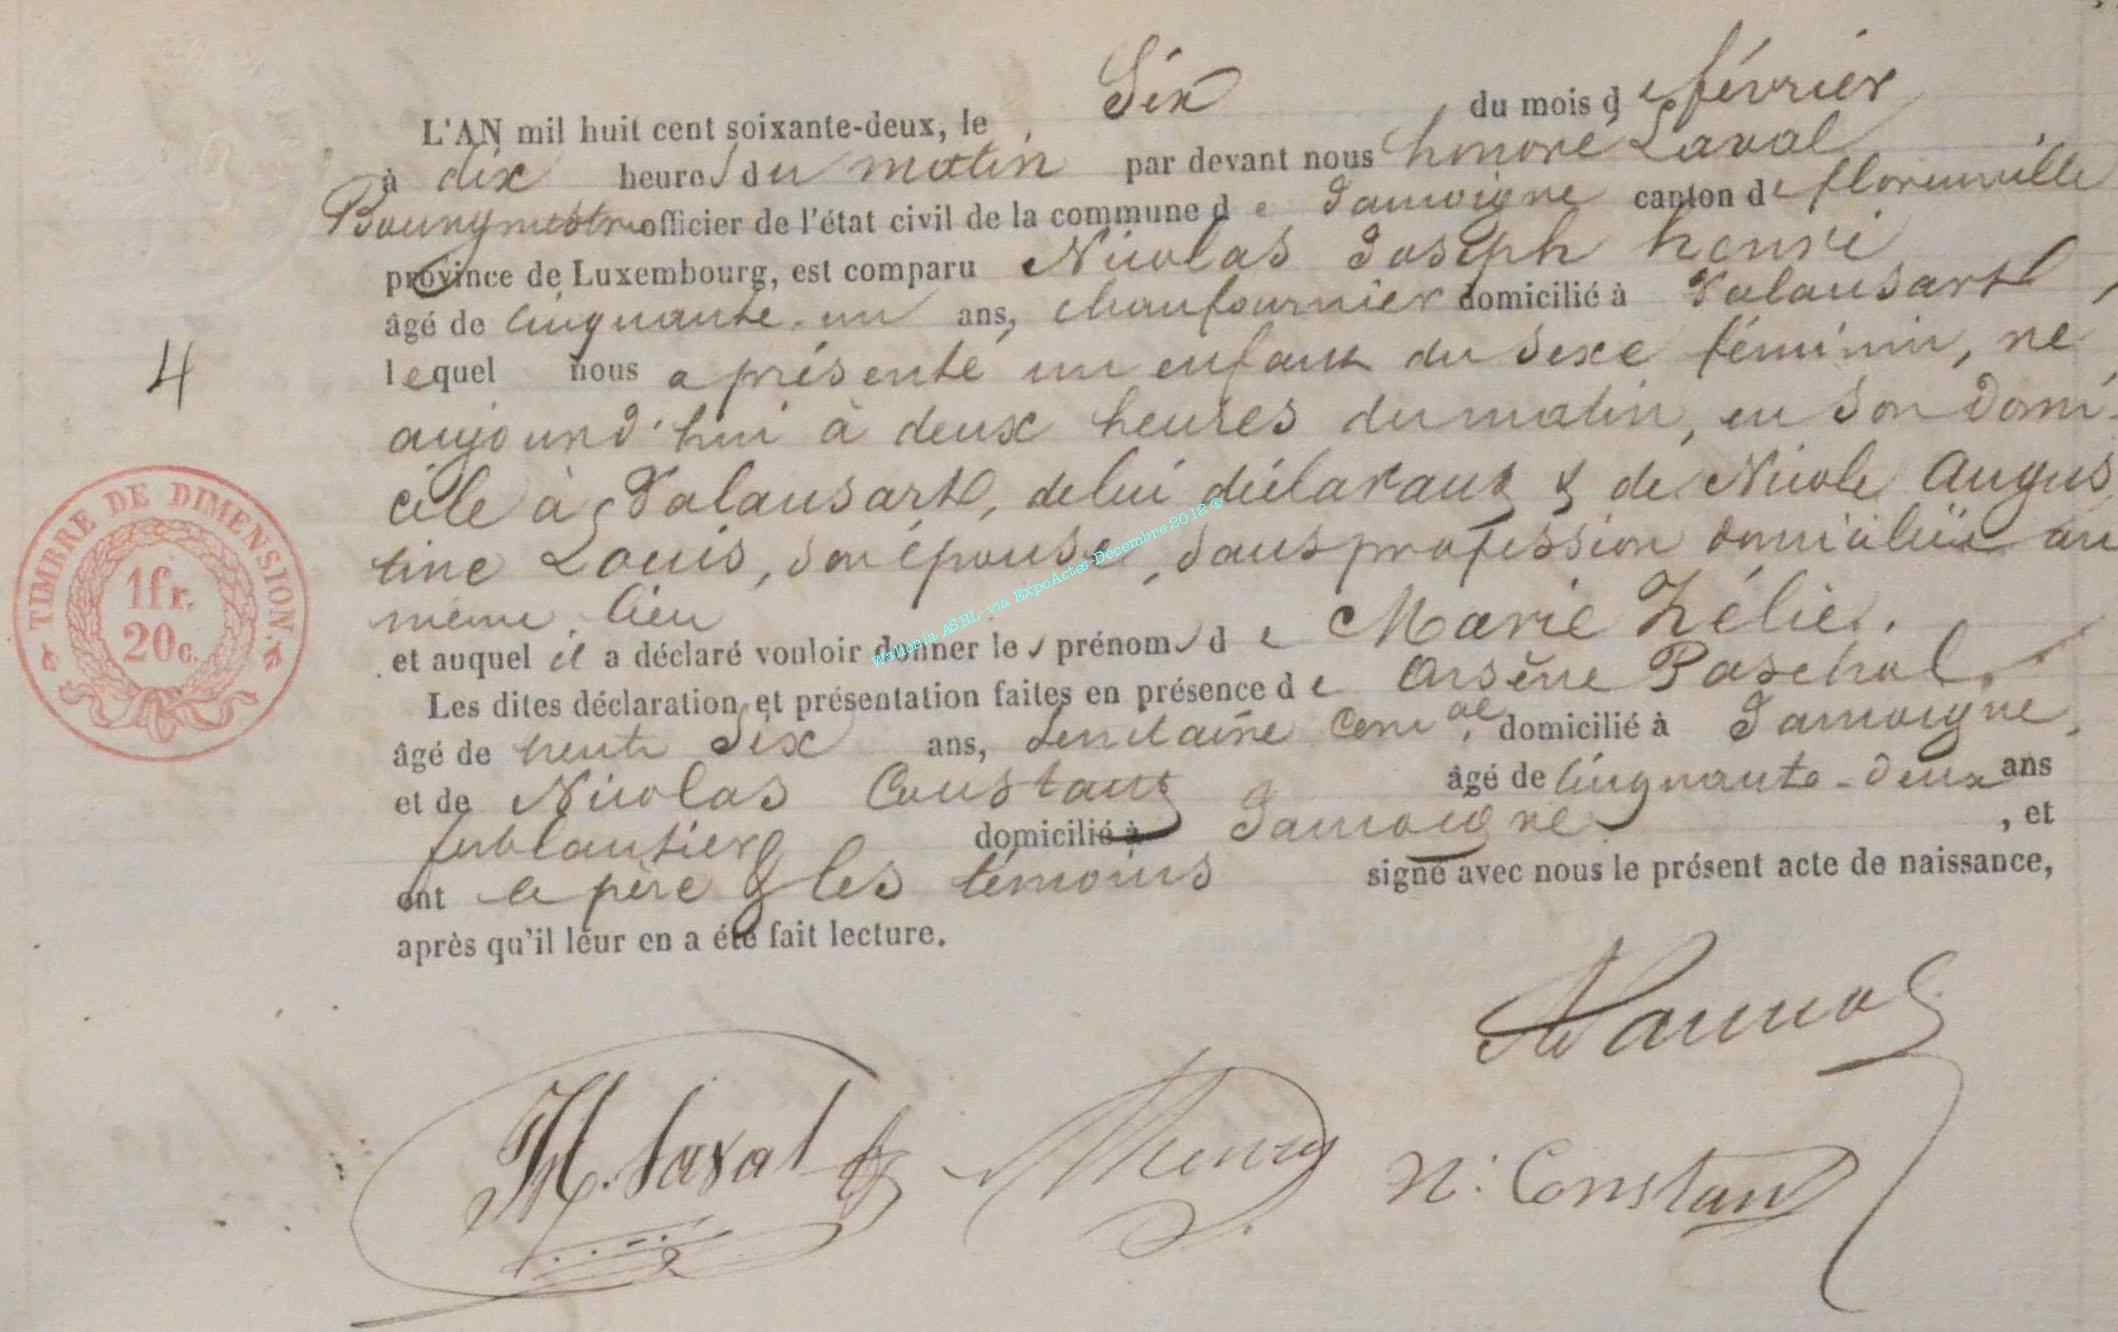 L'AN mil huit cent soixante-deux, le Six du mois de février
à dix heures du matin par devant nous honoré Laval
Bourgmestre officier de l'état civil de la commune de Jamoigne canton de florenville
province de Luxembourg, est comparu Nicolas Joseph henri
âgé de cinquante-un ans, chaufournier domicilié à Valansart,
lequel nous a présenté un enfant du sexe féminin, né
aujourd'hui à deux heures du matin, en son domi-
cile à Valansart, de lui déclarant & de Nicole Augus
tine Louis, son épouse, sans profession domiciliée au
même lieu
et auquel il a déclaré vouloir donner les prénoms de Marie Zélie.
Les dites déclaration et présentation faites en présence de Arsène Paschal,
âgé de trente six ans, Secrétaire Com.al, domicilié à Jamoigne,
et de Nicolas Constant âgé de cinquante-deux ans
ferblantier domicilié à Jamoigne, et
ont le père & les témoins signé avec nous le présent acte de naissance,
après qu'il leur en a été fait lecture.
4
TIMBRE DE DIMENSION.
1fr.
20c.
Wallonia ASBL, via ExpoActes Décembre 2012 ©
H. Laval
Henry
N. Constant